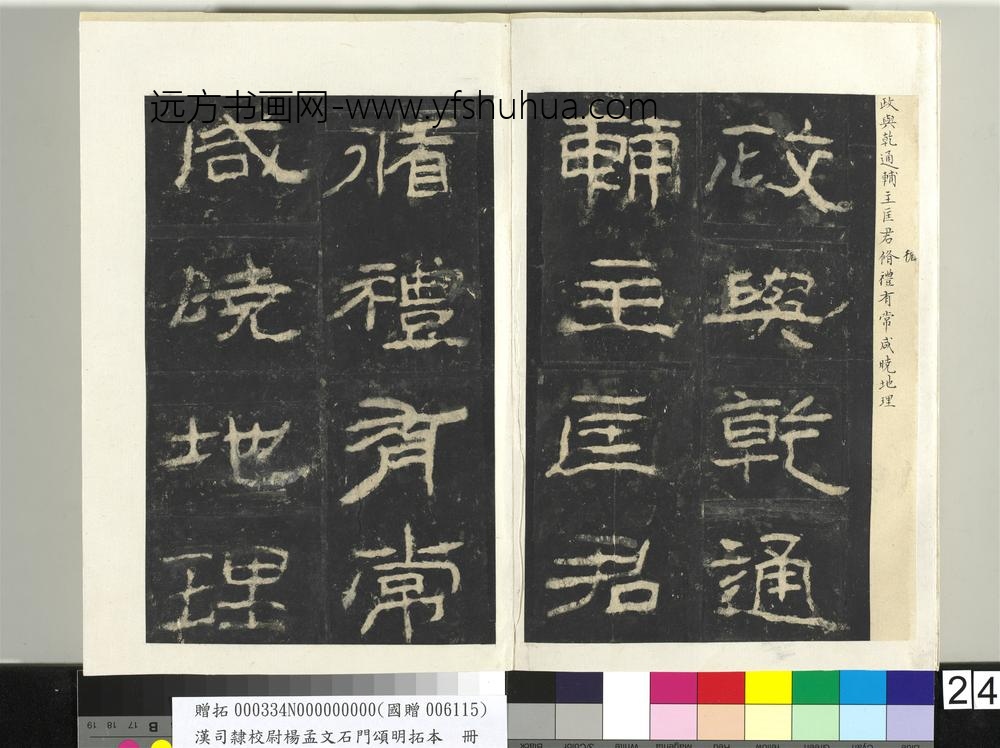 远方书画网-www.yfshuhua.com
政與乾通輔主匡君脩禮有常咸曉地理
政與乾通
輔主匡君
脩禮有常
咸曉地理
24
贈拓 000334N000000000(國贈 006115)
漢司隸校尉楊孟文石門頌明拓本 冊
19 18 17 B